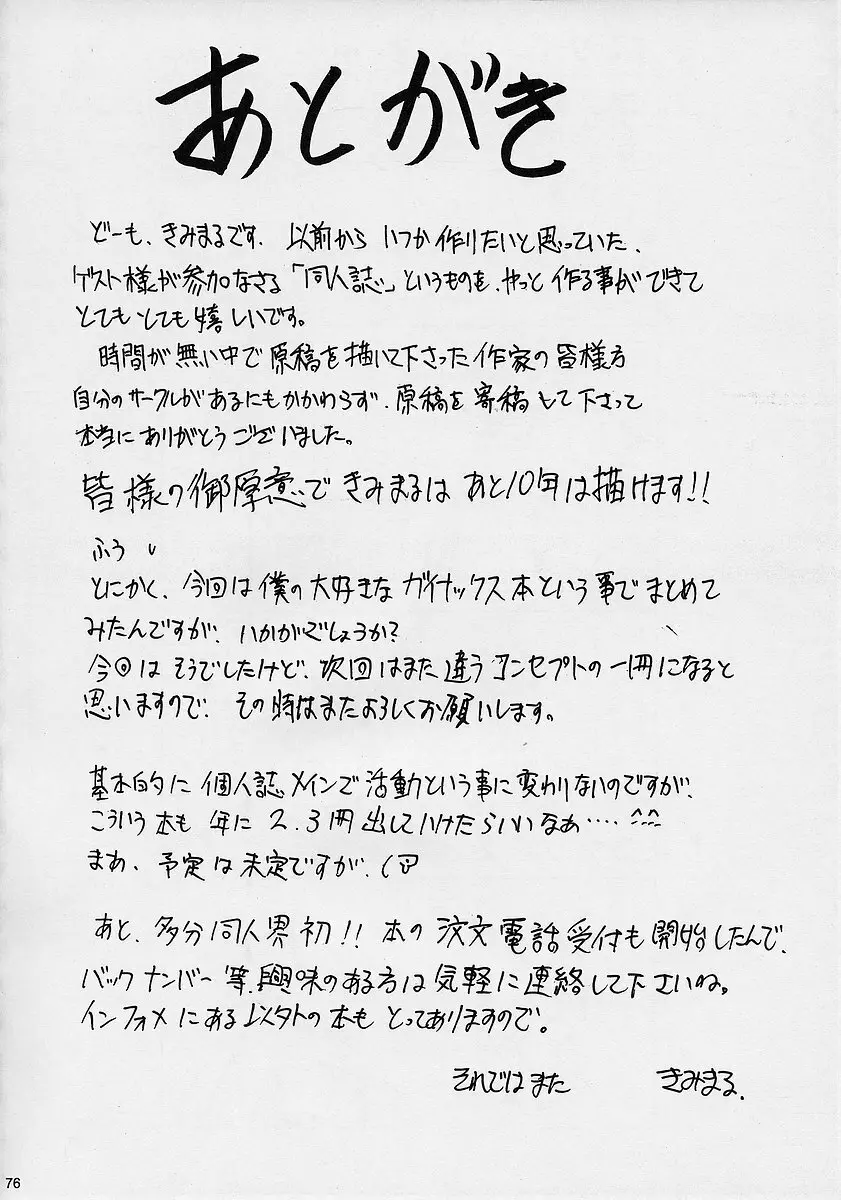 あとがき
どーも、きみまるです。以前からいつか作りたいと思っていた、
ゲスト様が参加なさる「同人誌」というものを、やっと作る事ができて
とてもとても嬉しいです。
時間が無い中で原稿を描いて下さった作家の皆様方
自分のサークルがあるにもかかわらず、原稿を寄稿して下さって
本当にありがとうございました。
皆様の御厚意できみまるはあと10年は描けます!!
ふう
とにかく、今回は僕の大好きなガイナックス本という事でまとめて
みたんですが、いかがでしょうか?
今回はそうでしたけど、次回はまた違うコンセプトの一冊になると
思いますので、その時はまたよろしくお願いします。
基本的に個人誌メインで活動という事に変わりないのですが、
こういう本も年に2.3冊出していけたらいいなあ‥‥^^
まあ、予定は未定ですが、(
あと、多分同人界初!!本の注文電話受付も開始したんで、
バックナンバー等、興味のある方は気軽に連絡して下さいね。
インフォメにある以外の本もとってありますので。
それではまた きみまる.
76